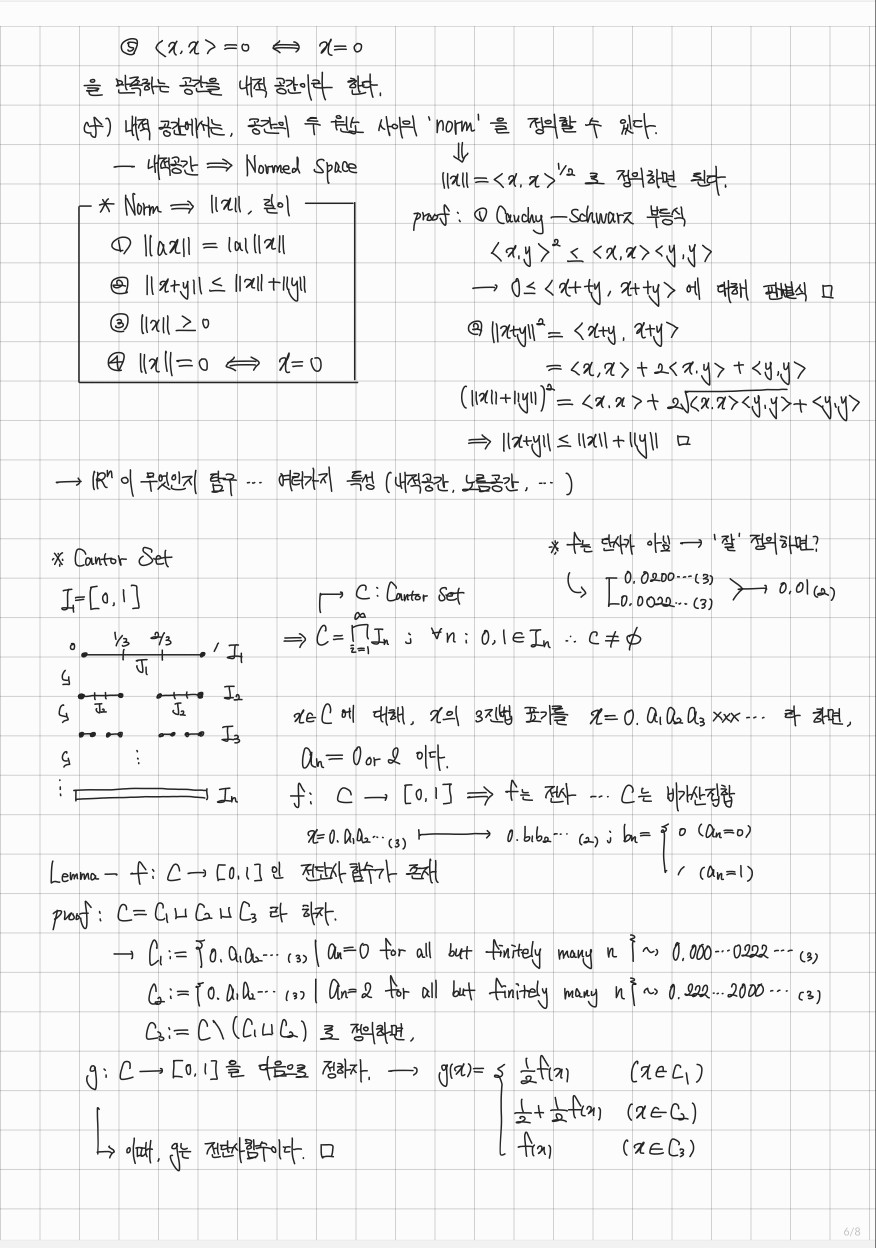 ⑤ <x, x> = 0 ⟺ x = 0
을 만족하는 공간을 내적 공간이라 한다.
cf) 내적 공간에서는, 공간의 두 원소 사이의 'norm' 을 정의할 수 있다.
— 내적공간 ⟹ Normed Space
⇓
||x|| = <x, x>^{1/2} 로 정의하면 된다.
* Norm ⟹ ||x||, 길이
① ||ax|| = |a| ||x||
② ||x+y|| ≤ ||x|| + ||y||
③ ||x|| ≥ 0
④ ||x|| = 0 ⟺ x = 0
proof : ① Cauchy – Schwarz 부등식
<x, y>² ≤ <x, x><y, y>
→ 0 ≤ <x+ty, x+ty> 에 대해 판별식 □
② ||x+y||² = <x+y, x+y>
= <x, x> + 2<x, y> + <y, y>
(||x||+||y||)² = <x, x> + 2√<x, x><y, y> + <y, y>
⟹ ||x+y|| ≤ ||x|| + ||y|| □
→ ℝⁿ 이 무엇인지 탐구 ··· 여러가지 특성 (내적공간, 노름공간, ··· )
* Cantor Set
I₁ = [0, 1]
0 1/3 2/3 1 I₁
J₁
J₂ J₂ I₂
I₃
⋮
⋮ Iₙ
* f는 단사가 아님 → '잘' 정의하면?
↳ [ 0.0200···(3)
0.0022···(3) ↦ 0.01(2)
↱ C : Cantor Set
⟹ C = ∏_{i=1}^{∞} Iₙ ; ∀n ; 0, 1 ∈ Iₙ ∴ C ≠ ∅
x∈C 에 대해, x의 3진법 표기를 x = 0. a₁ a₂ a₃ xxx ··· 라 하면,
aₙ = 0 or 2 이다.
f : C → [0, 1] ⟹ f는 전사 ··· C는 비가산집합
x = 0.a₁a₂···(3) ↦ 0.b₁b₂···(2) ; bₙ = { 0 (aₙ=0)
1 (aₙ=1)
Lemma – f : C → [0, 1] 인 전단사 함수가 존재
proof : C = C₁ ⊔ C₂ ⊔ C₃ 라 하자.
→ C₁ := {0.a₁a₂···(3) | aₙ=0 for all but finitely many n} ~> 0.000···0222···(3)
C₂ := {0.a₁a₂···(3) | aₙ=2 for all but finitely many n} ~> 0.222···2000···(3)
C₃ := C \ (C₁ ⊔ C₂) 로 정의하면,
g : C → [0, 1] 을 다음으로 정하자. → g(x) = { ½f(x) (x∈C₁)
½ + ½f(x) (x∈C₂)
f(x) (x∈C₃)
↳ 이때, g는 전단사함수이다. □
6/8